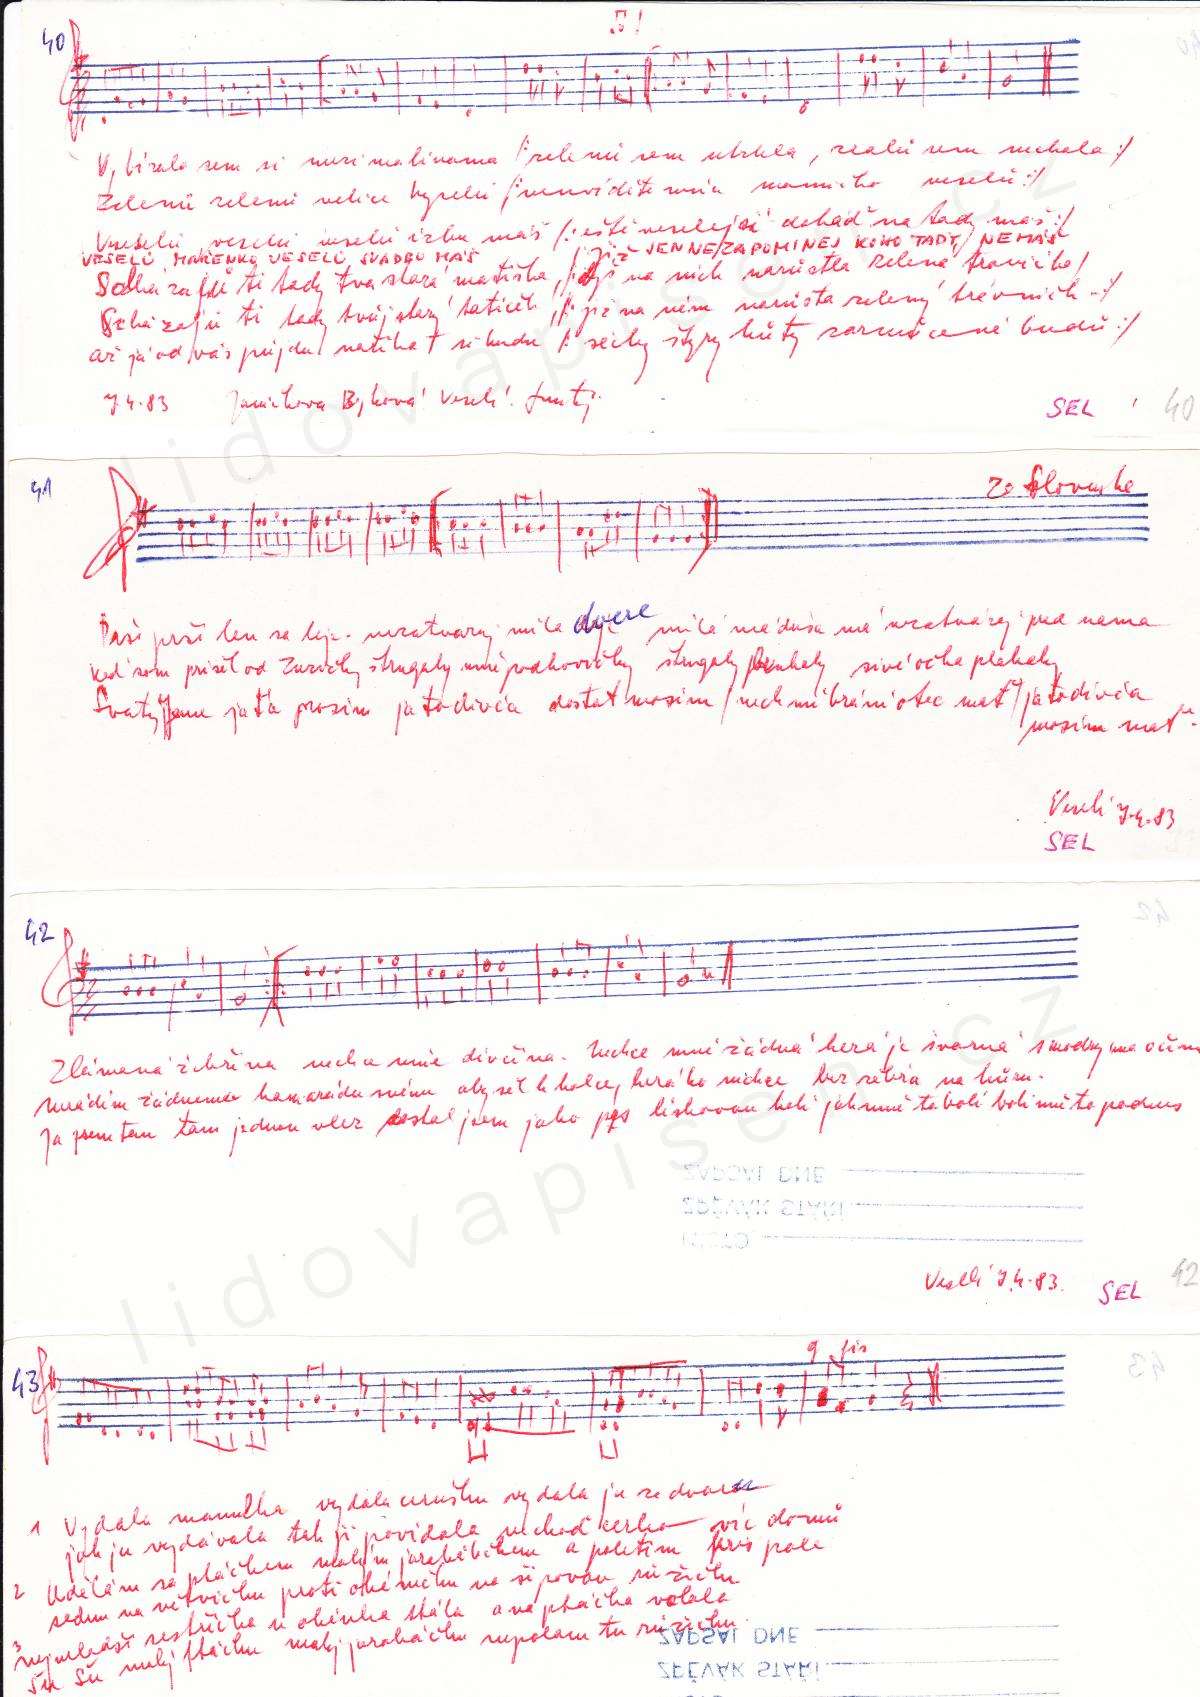 40
♫ !
Vybírala sem si mezi malinama /: zelenú sem utrhla, zralú sem nechala :/
Zelenú zelenú velice kyselú /: neuvidíte mňa mamičko veselú :/
Veselú veselú veselú izbu máš /: ešti veselejší dokáď na tady máš :/
VESELÚ MAŘENKO VESELÚ SVADBU MÁŠ / JIŽ JEN NEZAPOMINEJ KOHO TADY NEMÁŠ
Scházajú ti tady tvá stará matička, /: již na nich narostla zelená travička /
Scházajú ti tady tvůj starý tatíček /: již na něm narústa zelený trávníček :/
až já od vás půjdu naříkat si budu /: sécky štyry kúty zarmúcené budú :/
7.4.83 Janíčkova Býkova Veselí.
SEL
40
41
Ze Slovenska
Prší prší len sa leje. nezatvaraj milá dvere milá má duša má nezatvárej pred nama
keď sem prišel od Zuzičky štrngaly mně podkovičky štrngaly brnkaly sivé očka plakaly
Svatý Jene ja ťa prosím ja to divča dostat mosím / nech mi brání otec mať / ja to divča
mosím mať
Veselí 7.4.83
SEL
42
Zlámaná žebřina nechce mně divčina. Nechce mně žádná kerá je švarná s modrýma očima
neradím žádnemu kamarádu svému aby šel k holce, kerá ho nechce bez rebřa na húru.
Ja jsem tam tam jednou vlez dostal jsem jako pes lískovou holí jak mně to bolí bolí mně to podnes
ZAPSAL DNE
ZPĚVÁK STÁŘÍ
MÍSTO
Veselí 7.4.83.
SEL
42
43
g fis
43
1 Vydala mamulka vydala cerušku vydala ju ze dvora
jak ju vydávala tak jí povídala nechoď cerko víc domů
2 Udělám sa ptáčkem malým jarabáčkem a poletím přes pole
sednu na větvičku proti okénečku na šípovou růžičku
3 nejmladší sestřička u okénka stála a na ptáčka volala
šu šu malý ptáčku malý jarabáčku nepolam tu růžičku.
ZAPSAL DNE
ZPĚVÁK STÁŘÍ
lidovapisen.cz
lidovapisen.cz